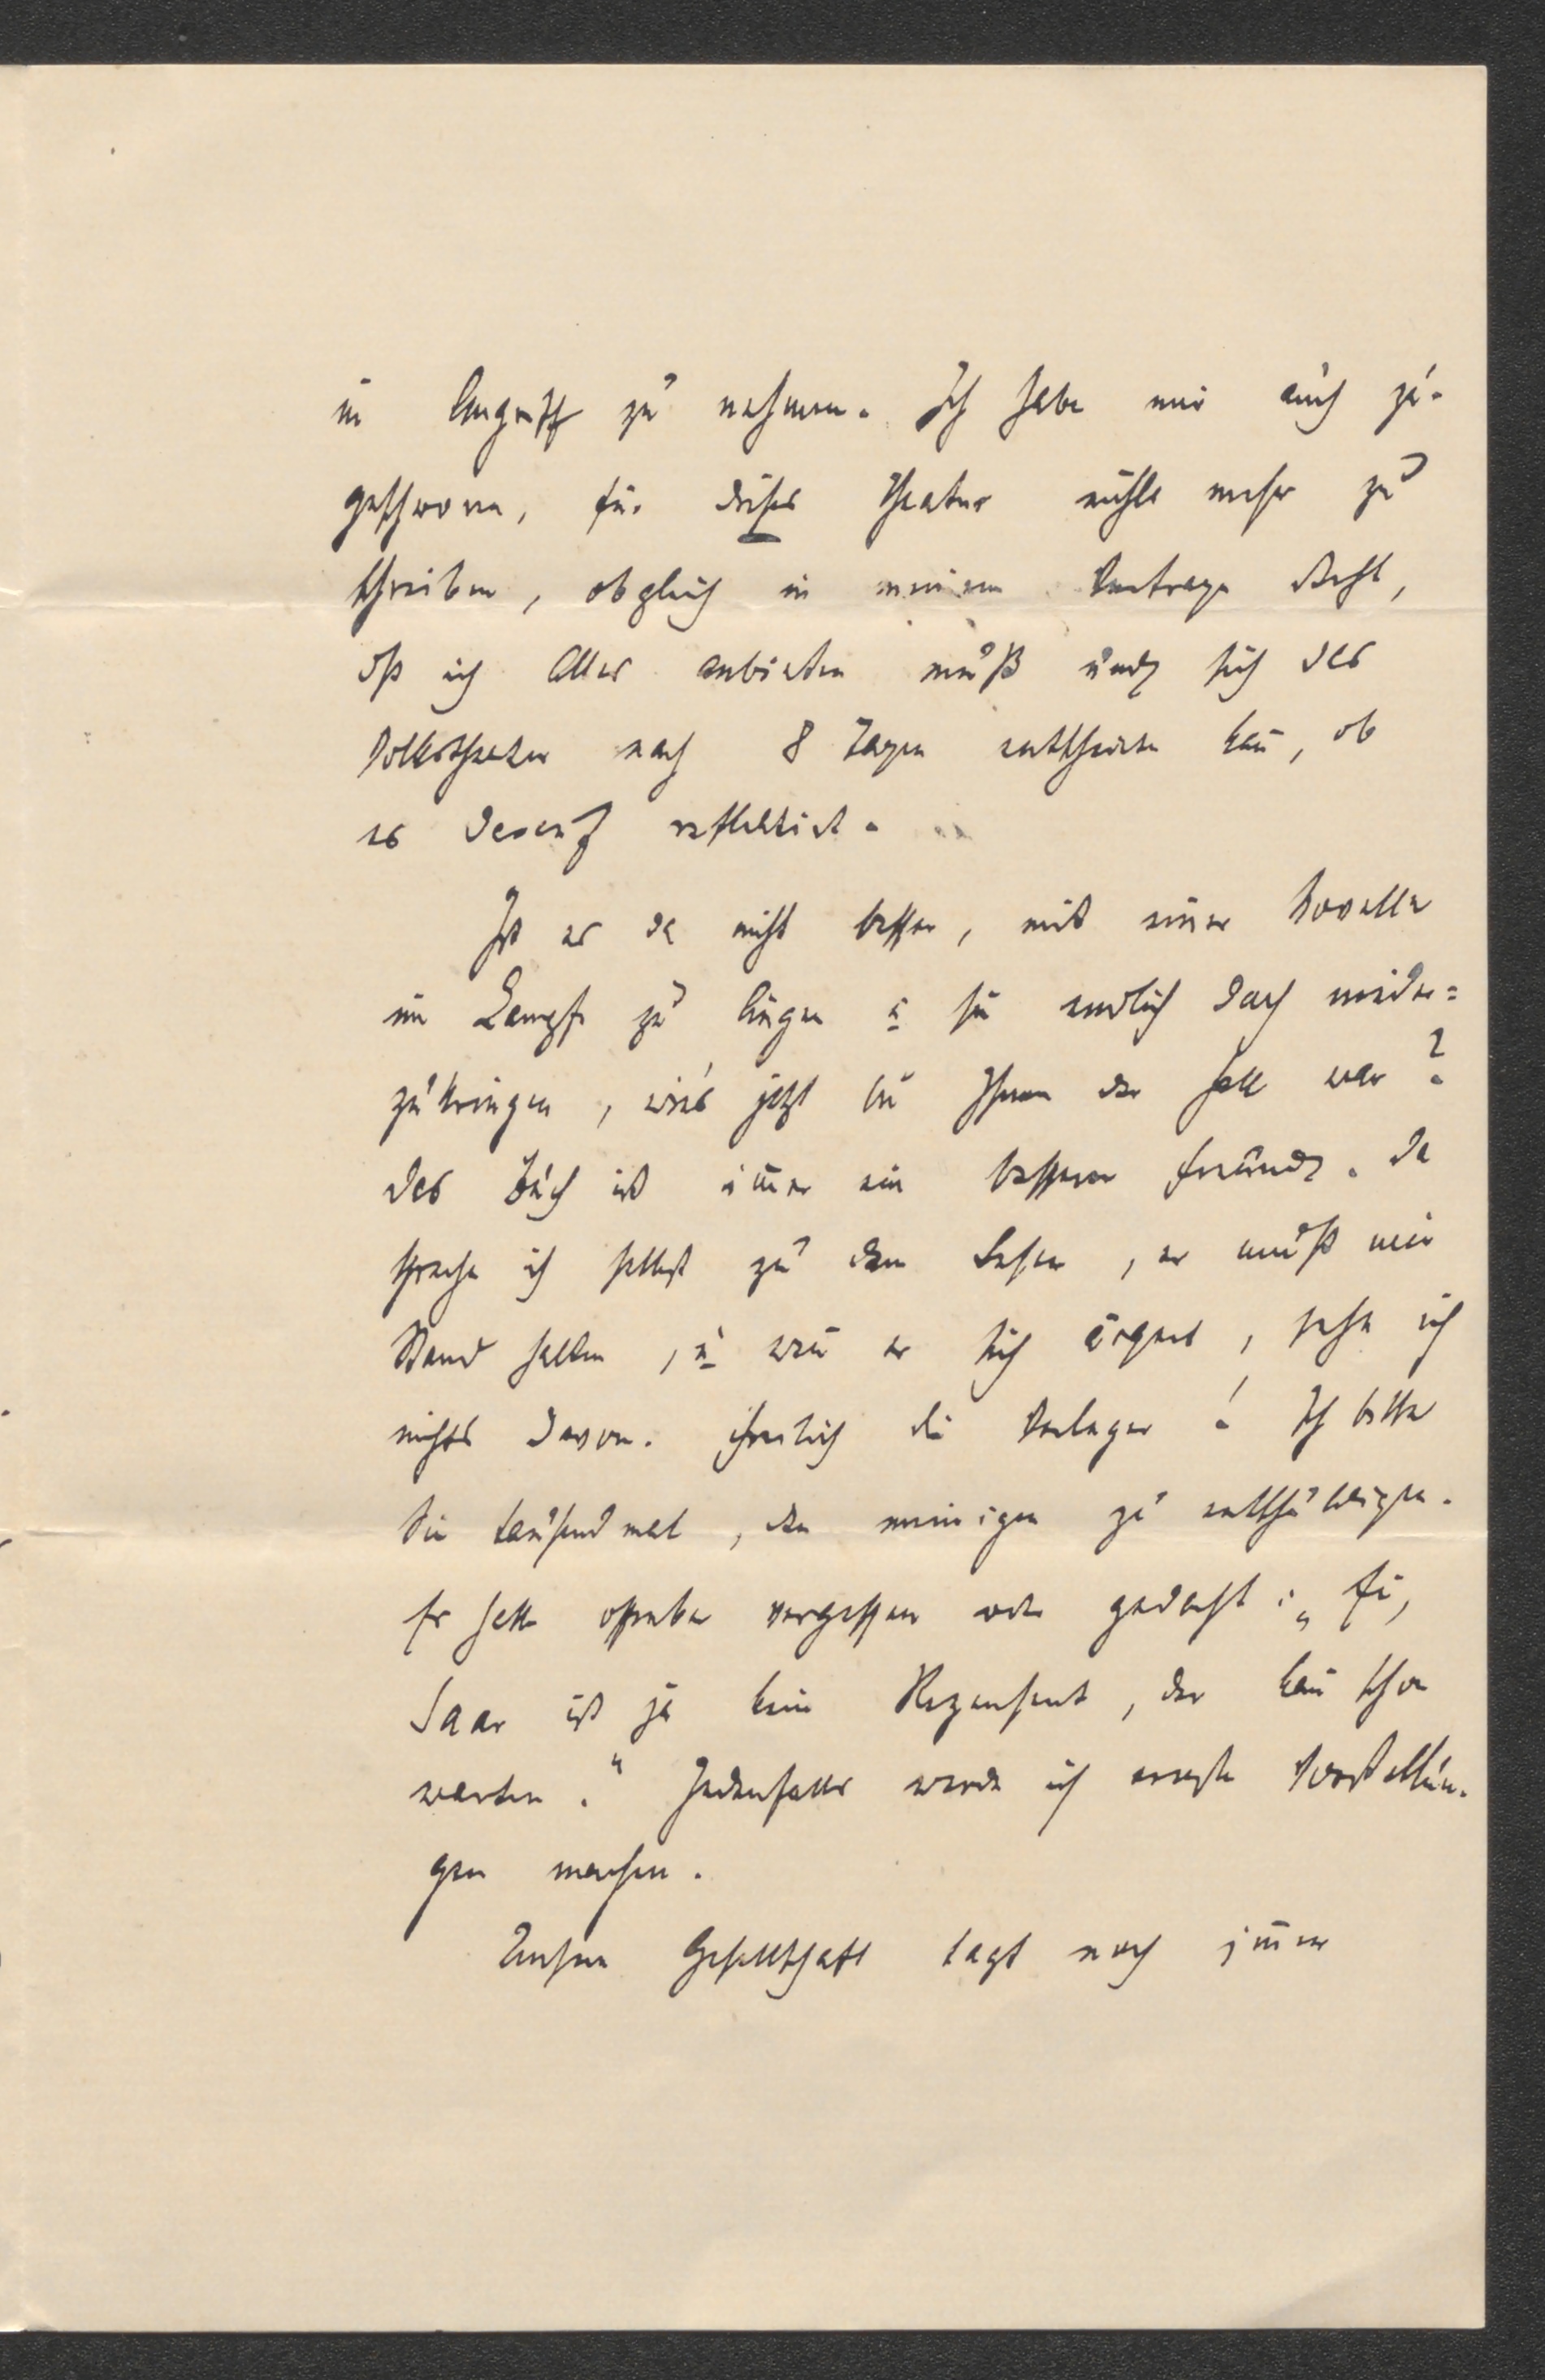 in Angriff zu nehmen. Ich habe mir auch zu-
geschworen, für dieses Theater nichts mehr zu
schreiben, obgleich in meinem Vertrage steht,
dß ich Alles anbieten muß und sich das
Volkstheater nach 8 Tagen entscheiden kañ, ob
es darauf reflektirt.
Ist es da nicht besser, mit einer Novelle
im Kampfe zu liegen u sie endlich doch nieder=
zuringen, wie's jetzt bei Ihnen der Fall war?
Das Buch ist im̄er ein besserer Freund. Da
spreche ich selbst zu dem Leser, er muß mir
Stand halten, u weñ er sich ärgert, sehe ich
nichts davon. Freilich die Verleger! Ich bitte
Sie tausendmal, den meinigen zu entschuldigen.
Er hatte offenbar vergessen oder gedacht: „Ei,
Saar ist ja kein Rezensent, der kañ schon
warten." Jedenfalls werde ich ernste Vorstellun-
gen machen.
Unsere Gesellschaft tagt noch im̄er